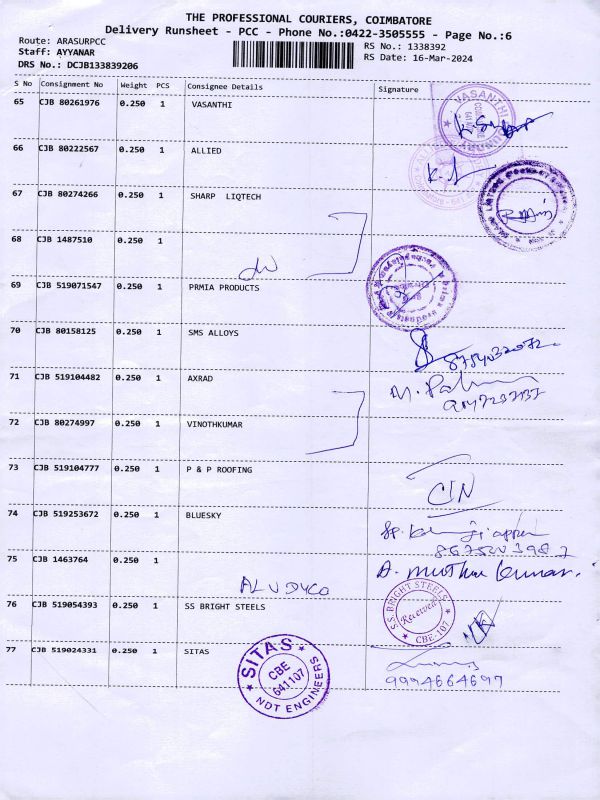 THE PROFESSIONAL COURIERS, COIMBATORE
Delivery Runsheet - PCC - Phone No.:0422-3505555 - Page No.:6
Route: ARASURPCC
Staff: AYYANAR
DRS No.: DCJB133839206
RS No.: 1338392
RS Date: 16-Mar-2024
S No Consignment No Weight PCS Consignee Details Signature
65 CJB 80261976 0.250 1 VASANTHI
VASANTHI
66 CJB 80222567 0.250 1 ALLIED
67 CJB 80274266 0.250 1 SHARP LIQTECH
68 CJB 1487510 0.250 1
69 CJB 519071547 0.250 1 PRMIA PRODUCTS
70 CJB 80158125 0.250 1 SMS ALLOYS
71 CJB 519104482 0.250 1 AXRAD
72 CJB 80274997 0.250 1 VINOTHKUMAR
73 CJB 519104777 0.250 1 P & P ROOFING
74 CJB 519253672 0.250 1 BLUESKY
75 CJB 1463764 0.250 1
76 CJB 519054393 0.250 1 SS BRIGHT STEELS
S.S. BRIGHT STEELS
Received
CBE-107
77 CJB 519024331 0.250 1 SITAS
9994664697
SITAS
CBE
641107
NDT ENGINEERS